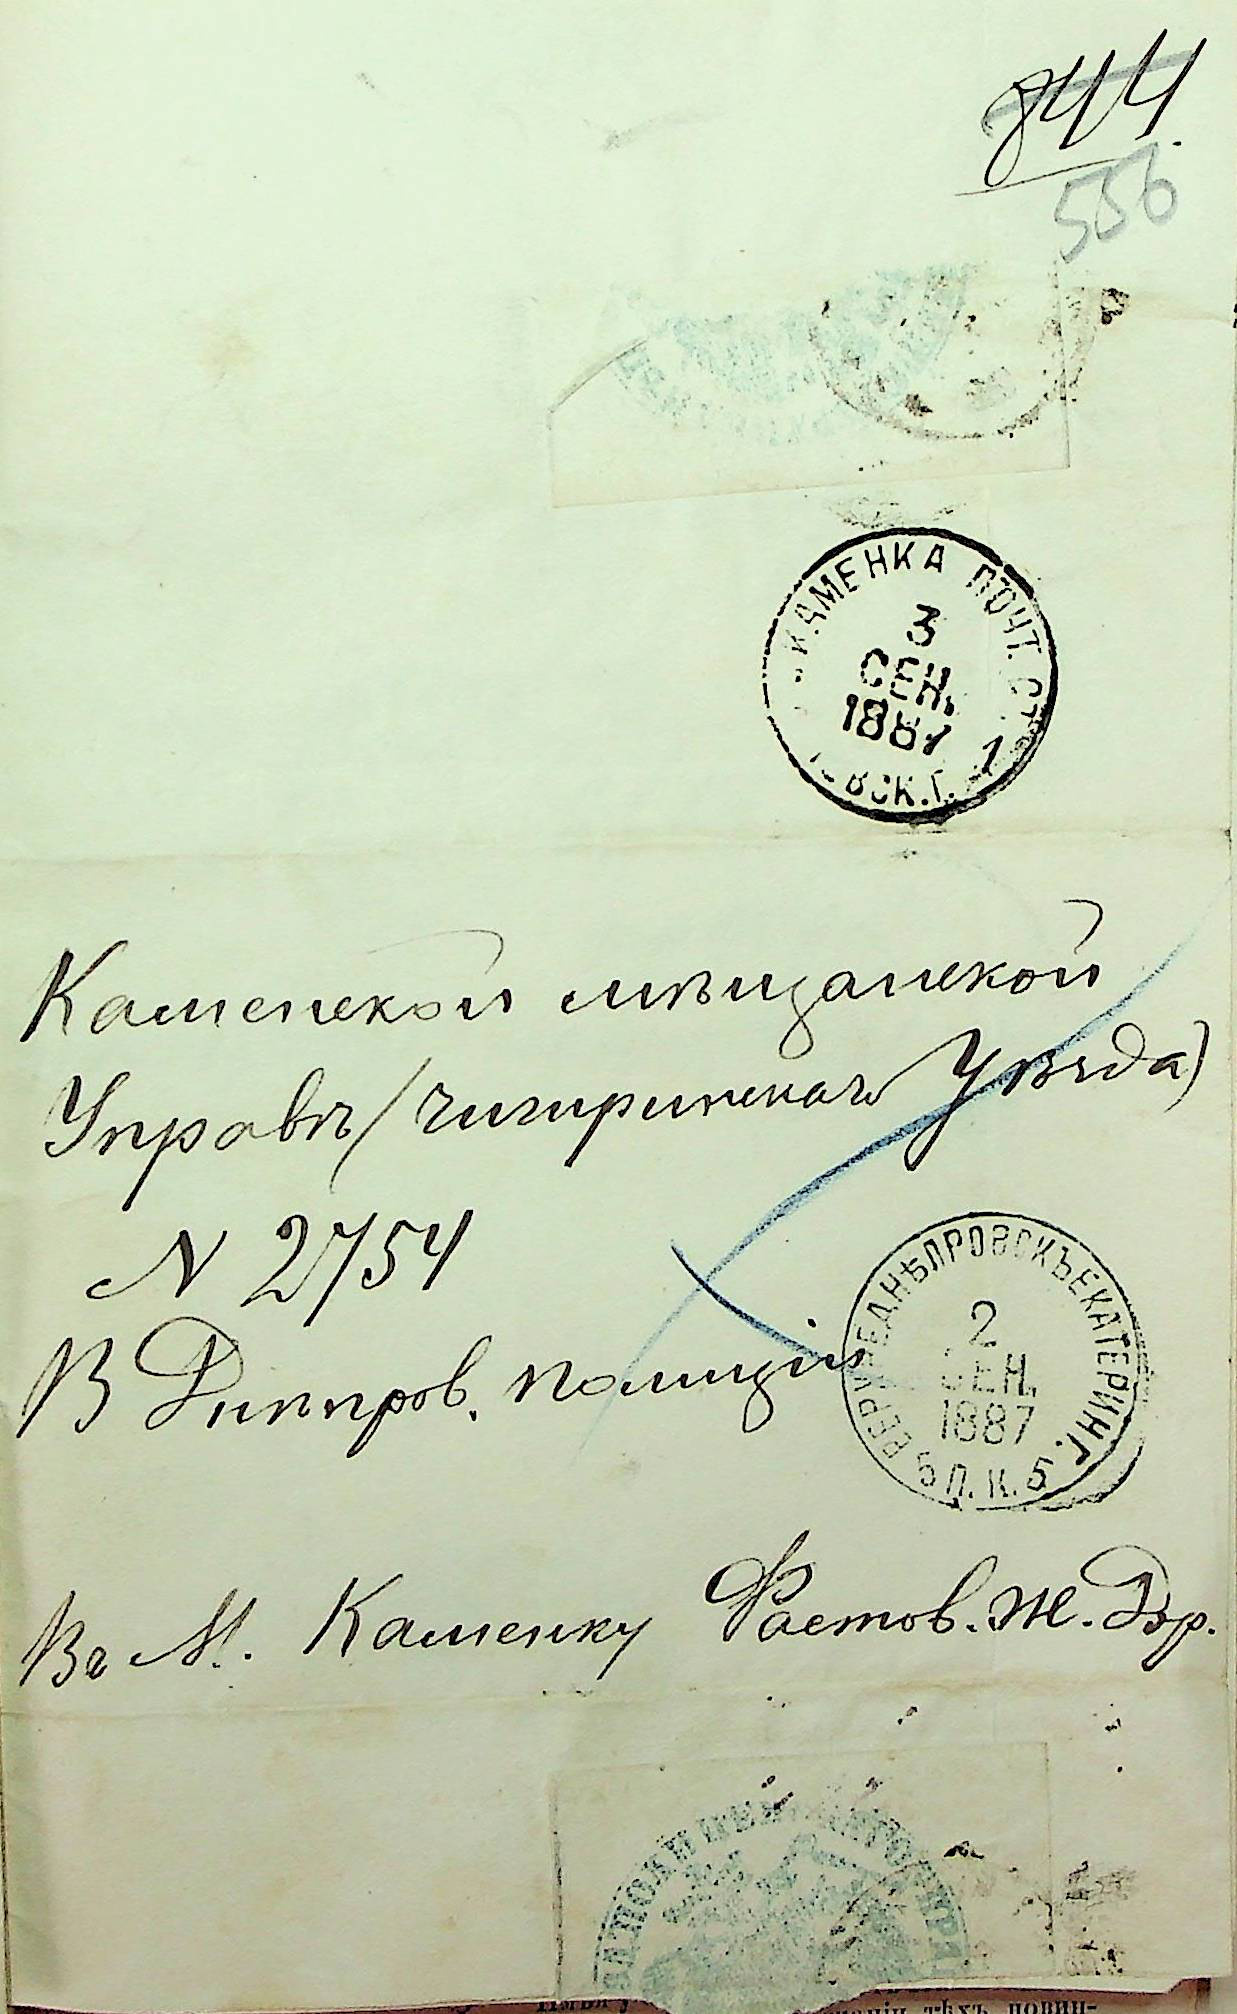 844.
556
КАМЕНКА ПОЧТ. СТ.
3
СЕН.
1887
ВСК. Г. 1
Каменской мѣщанской
Управѣ (Чигиринскаго Уѣзда)
N 2754
В Днѣпров. полиціи
ВЕРХНЕДНѢПРОВСКЪ ЕКАТЕРИН. Г.
2
СЕН.
1887
5 П. К. 5
Въ М. Каменку Фастов. ж. Дор.
тѣхъ повин-